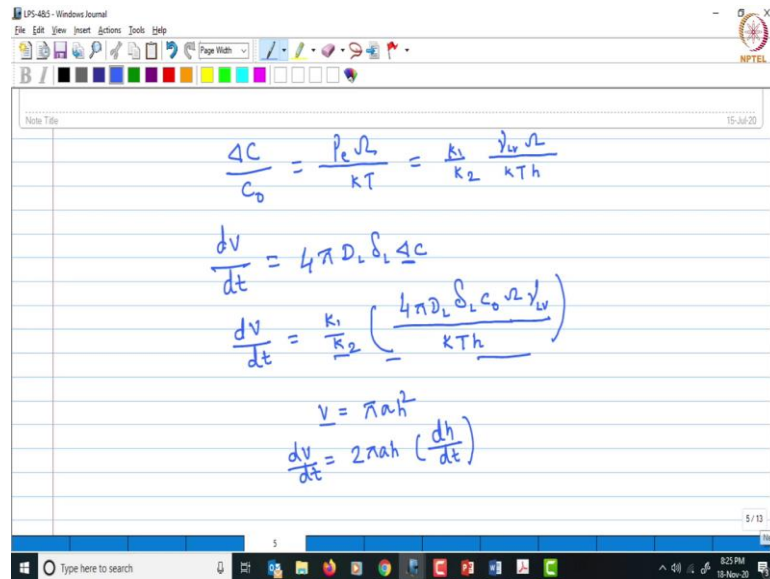 LPS-4&5 - Windows Journal
File Edit View Insert Actions Tools Help
Page Width
NPTEL
B I
Note Title
15-Jul-20
ΔC/C₀ = PₑΩ/kT = k₁/k₂ γ_LV Ω/kTh
dv/dt = 4πD_L δ_L ΔC
dv/dt = k₁/k₂ (4πD_L δ_L C₀ Ω γ_LV/kTh)
v = πah²
dv/dt = 2πah (dh/dt)
5/13
5
Type here to search
8:25 PM
18-Nov-20